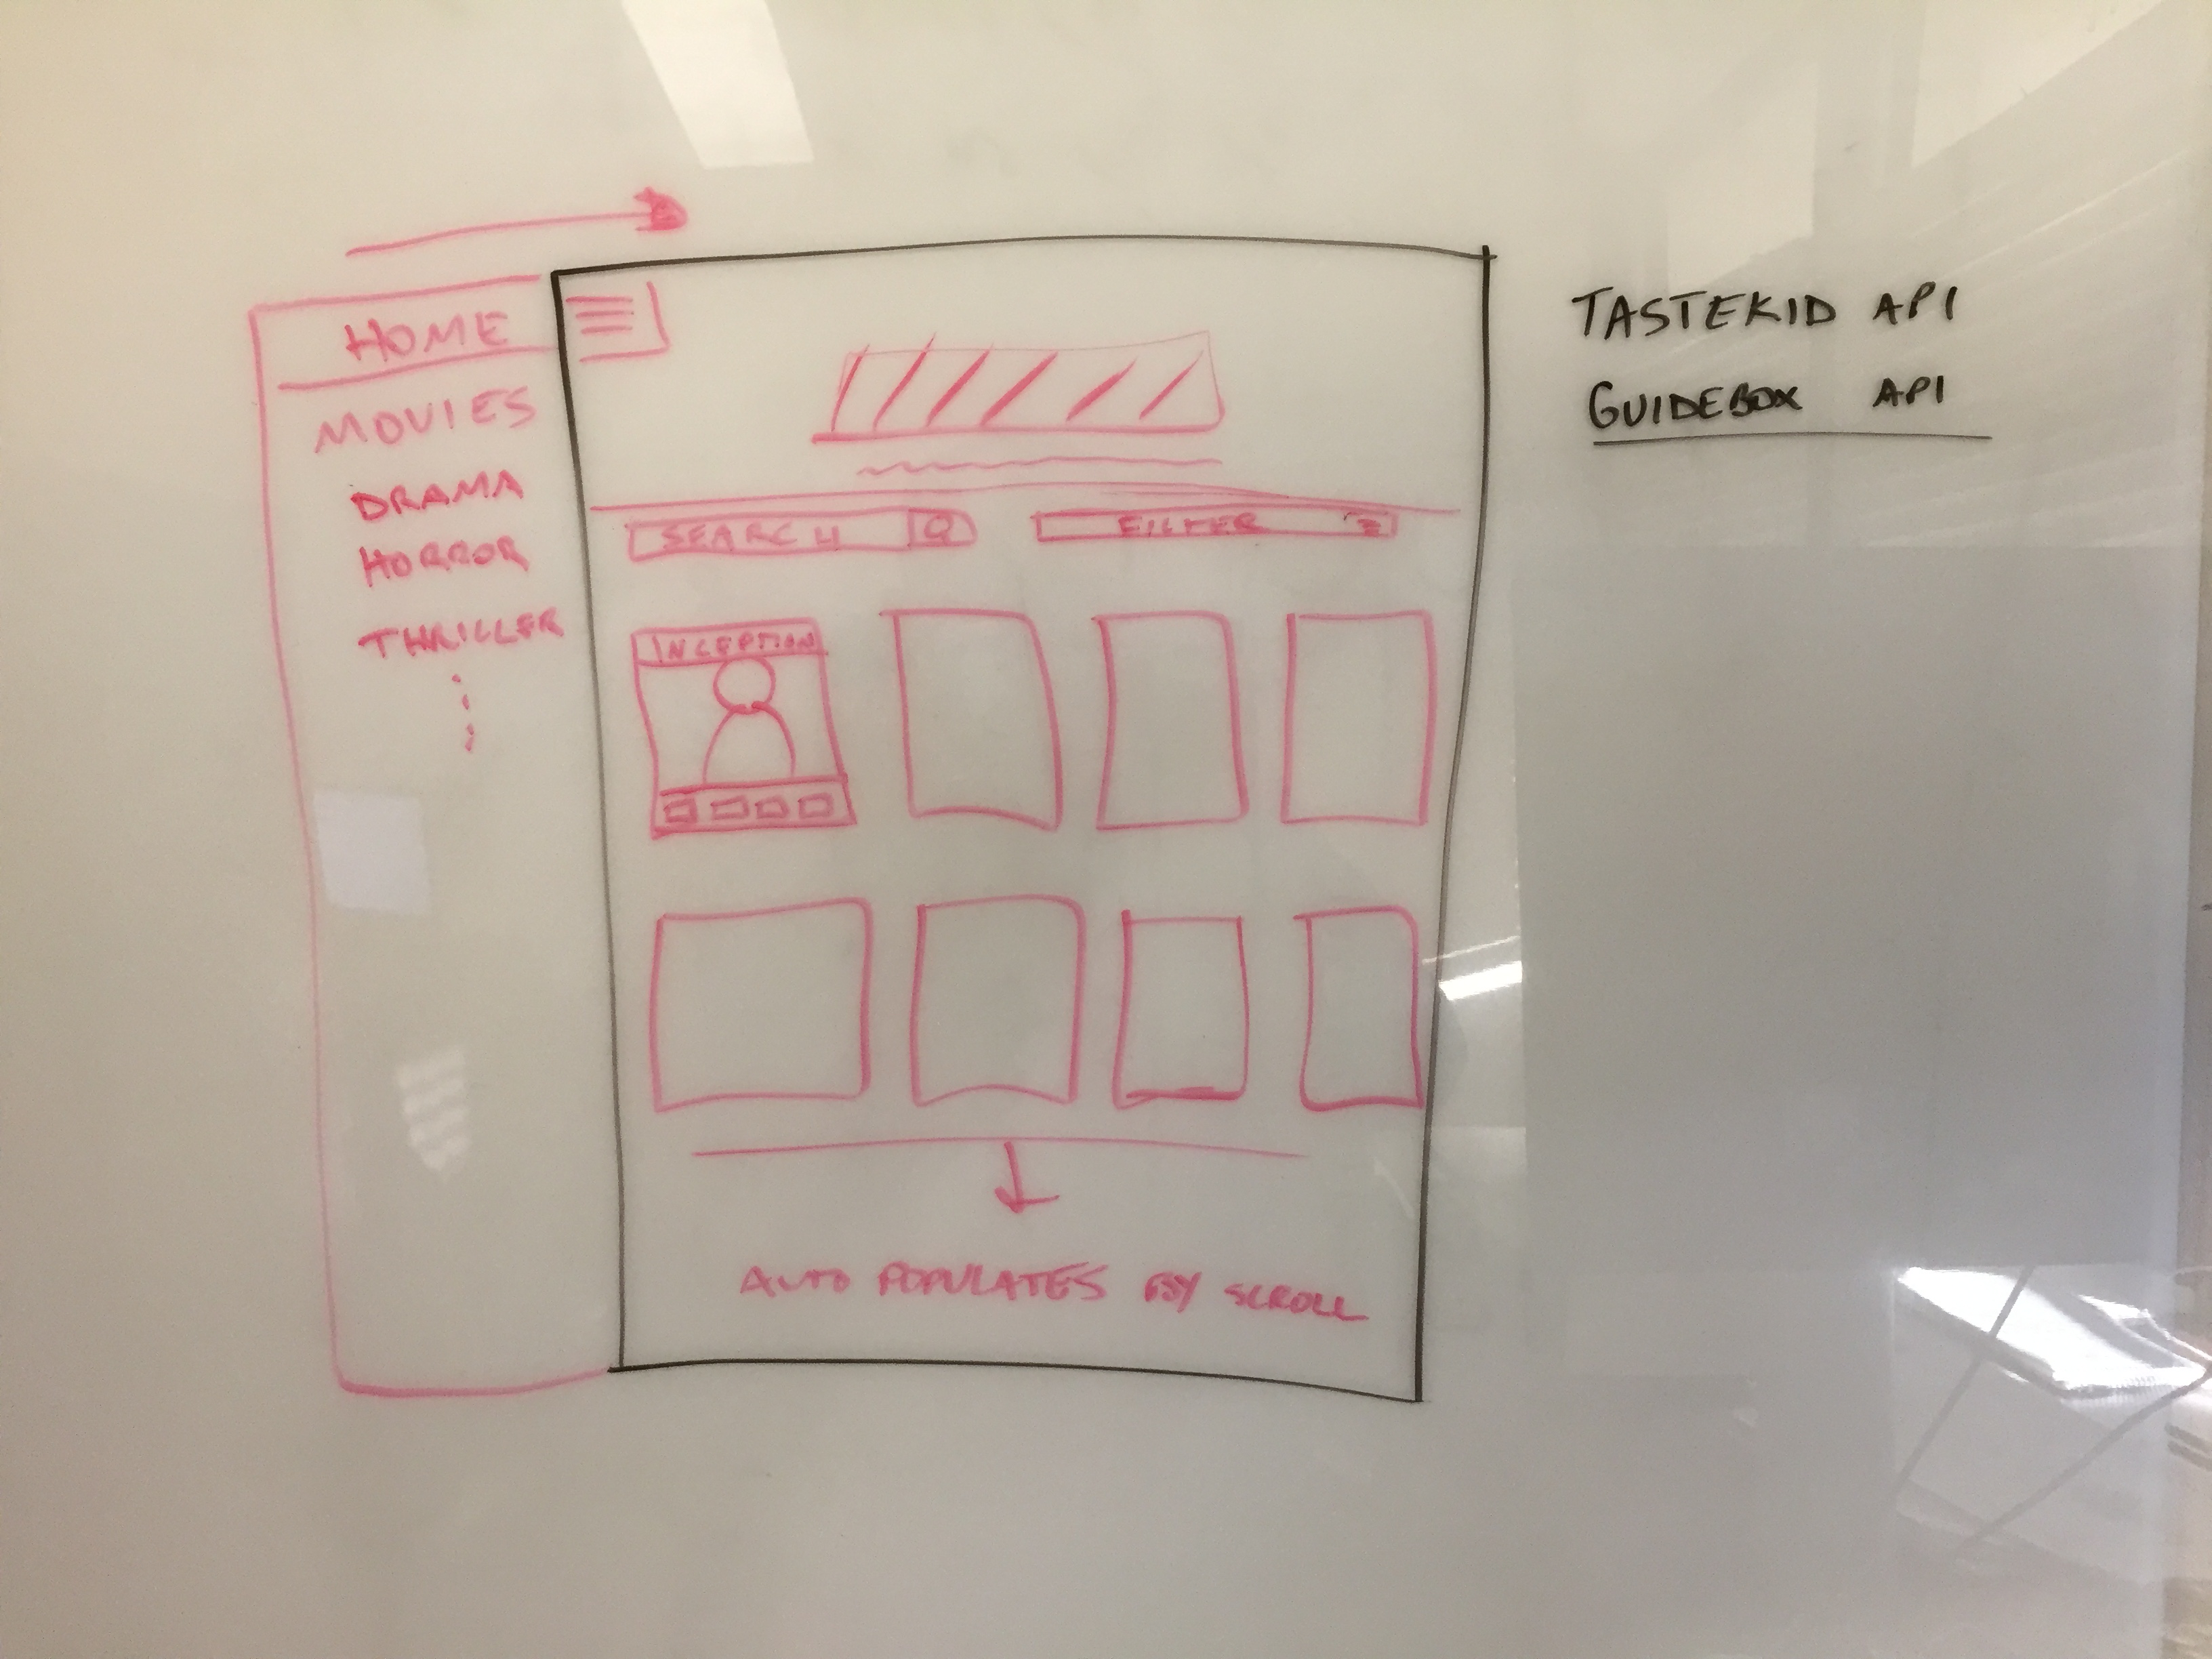 HOME
MOVIES
DRAMA
HORROR
THRILLER
SEARCH
FILTER
INCEPTION
AUTO POPULATES BY SCROLL
TASTEKID API
GUIDEBOX API